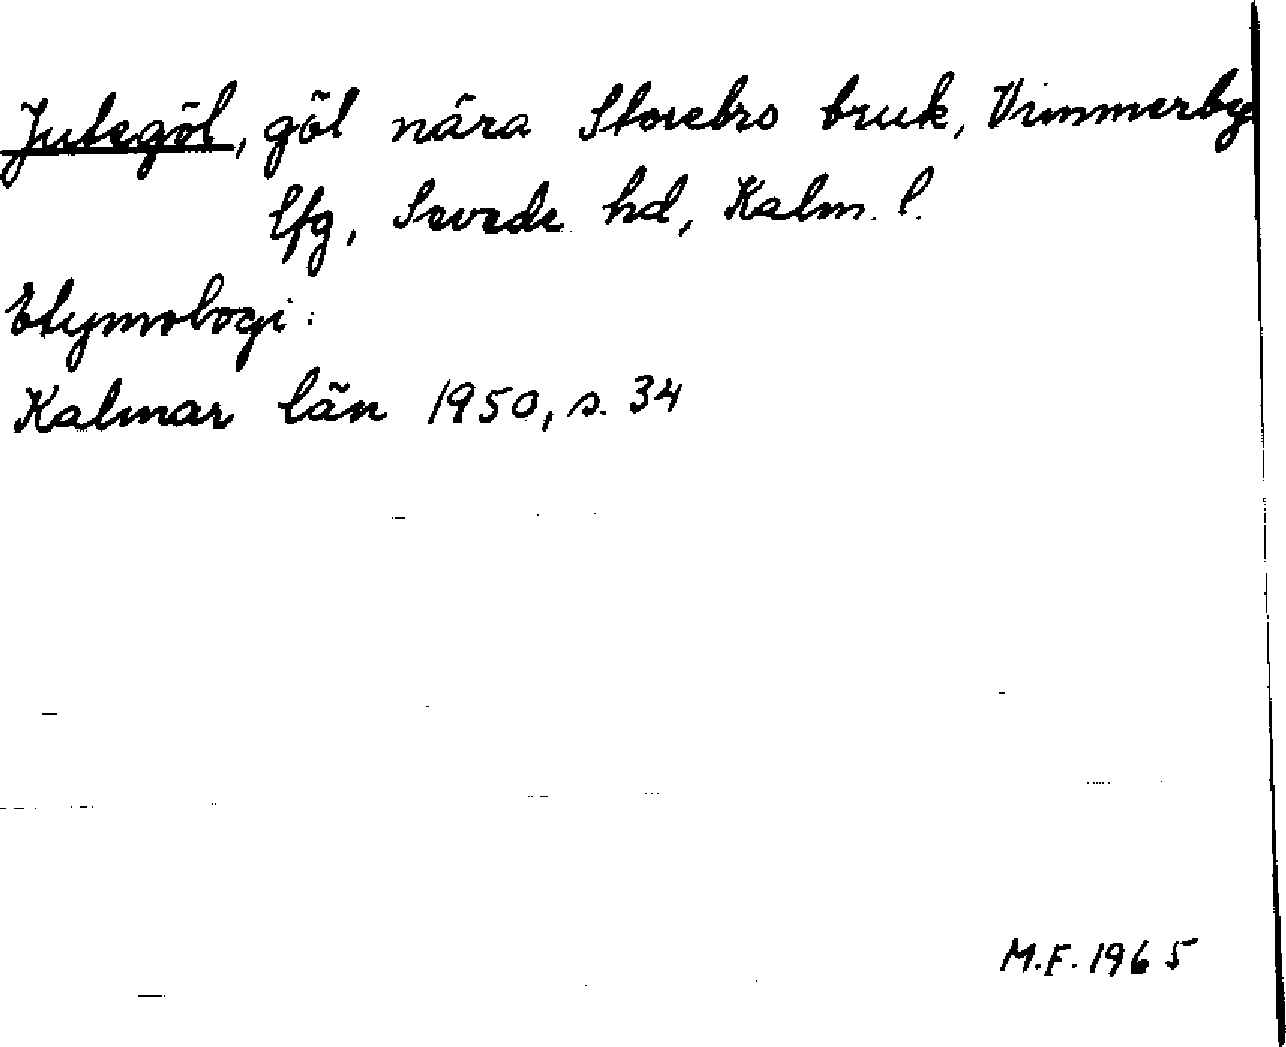 Jutegöl, göl nära Storebro bruk, Vimmerby
lfg, Sevede hd, Kalm. l.
Etymologi:
Kalmar län 1950, s. 34
M.F. 1965